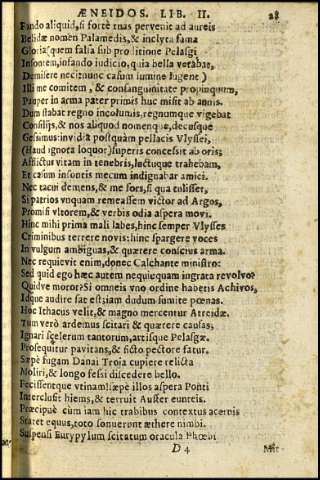 ÆNEIDOS. LIB. II. 28
Fando aliquid, si fortè tuas pervenit ad aureis
Belidæ nomen Palamedis, & inclyta fama
Gloria: quem falsa sub proditione Pelasgi
Insontem, infando judicio, quia bella vetabat,
Demisere neci: nunc cassum lumine lugent)
Illi me comitem, & consanguinitate propinquum,
Pauper in arma pater primis huc misit ab annis.
Dum stabat regno incolumis, regnumque vigebat
Consilijs, & nos aliquod nomenque, decusque
Gessimus: invidia postquam pellacis Vlyssei,
(Haud ignota loquor) superis concessit ab oris;
Afflictus vitam in tenebris, luctuque trahebam,
Et casum insontis mecum indignabar amici.
Nec tacui demens, & me fors, si qua tulisset,
Si patrios unquam remeassem victor ad Argos,
Promisi vltorem, & verbis odia aspera movi.
Hinc mihi prima mali labes, hinc semper Vlysses
Criminibus terrere novis: hinc spargere voces
In vulgum ambiguas, & quærere conscius arma.
Nec requievit enim, donec Calchante ministro:
Sed quid ego hæc autem nequicquam ingrata revolvo?
Quidve moror? Si omneis vno ordine habetis Achivos,
Idque audire sat est; iam dudum sumite pœnas.
Hoc Ithacus velit, & magno mercentur Atreidæ.
Tum verò ardemus scitari & quærere causas;
Ignari scelerum tantorum, artisque Pelasgæ.
Prosequitur pavitans, & ficto pectore fatur.
Sæpè fugam Danai Troia cupiere relicta
Moliri, & longo fessi discedere bello.
Fecissentque vtinam! sæpè illos aspera Ponti
Interclusit hiems, & terruit Auster eunteis.
Præcipuè cùm iam hic trabibus contextus acernis
Staret equus, toto sonuerunt æthere nimbi.
Suspensi Eurypylum scitatum oracula Phœbi
D 4